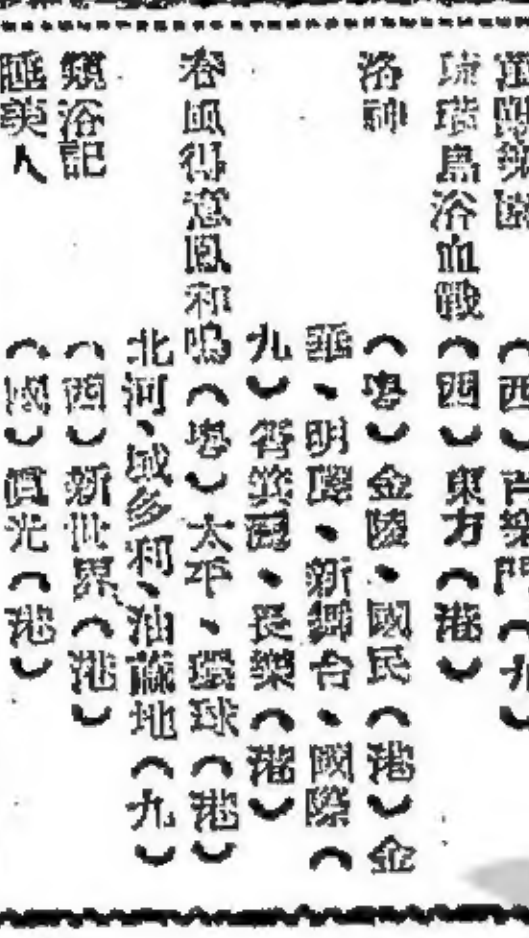 樂園（西）百樂門（九）
琉璜島浴血戰（西）東方（港）
洛神（粤）金陵、國民（港）金
華、明聲、新舞台、國際（
九）筲箕灣、長樂（港）
春風得意鳳和鳴（粤）太平、環球（港）
北河、域多利、油蔴地（九）
窺浴記（西）新世界（港）
睡美人（國）眞光（港）